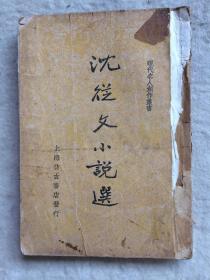 現代名人創作叢書
沈從文小說選
上海仿古書店發行